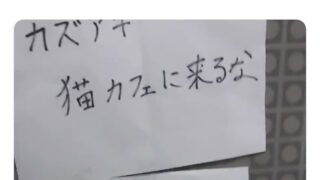 カズアキ
猫カフェに来るな